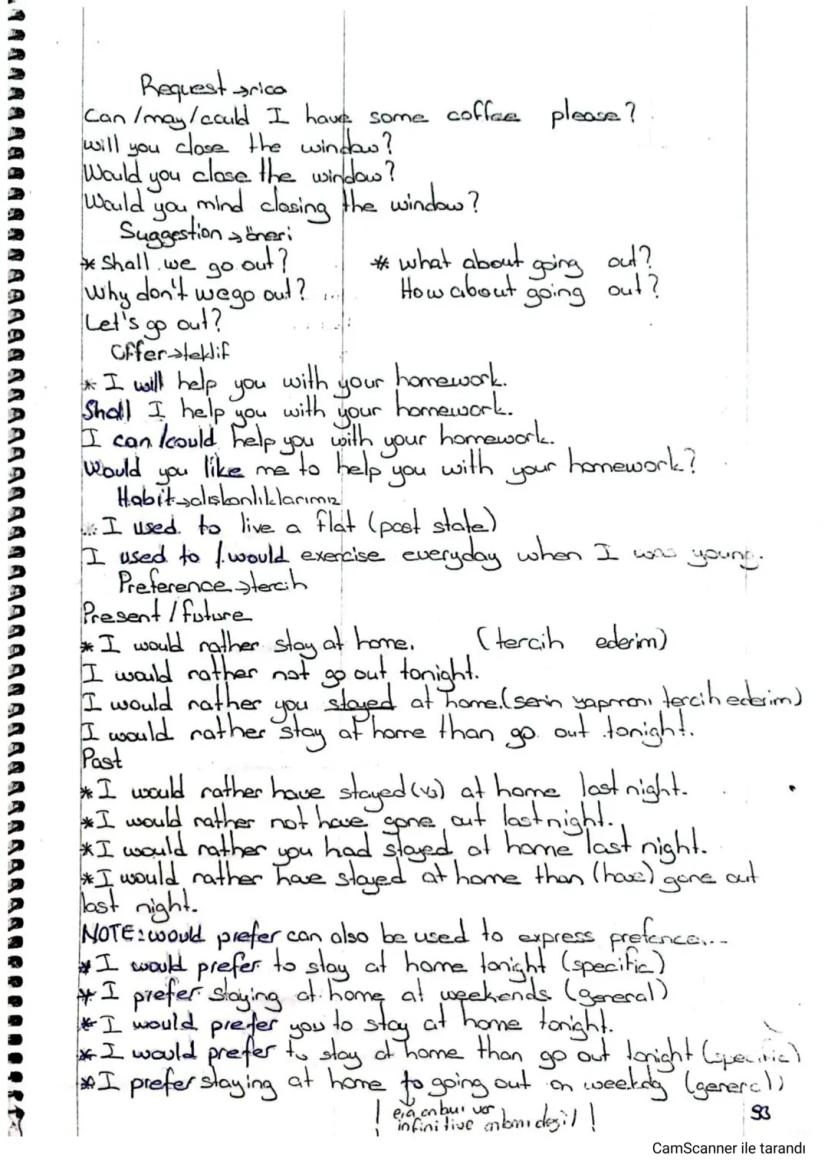 Request → rica
Can /may/could I have some coffee please?
Will you close the window?
Would you close the window?
Would you mind closing the window?
Suggestion → öneri
* Shall we go out? * what about going out?
Why don't we go out? ... How about going out?
Let's go out?
Offer → teklif
* I will help you with your homework.
Shall I help you with your homework.
I can /could help you with your homework.
Would you like me to help you with your homework?
Habit → alışkanlıklarımız
I used to live a flat (past state)
I used to /would exercise everyday when I was young.
Preference → tercih
Present / future
* I would rather stay at home. (tercih ederim)
I would rather not go out tonight.
I would rather you stayed at home. (senin yapmanı tercih ederim)
I would rather stay at home than go out tonight.
Past
* I would rather have stayed (v3) at home last night.
* I would rather not have gone out last night.
* I would rather you had stayed at home last night.
* I would rather have stayed at home than (have) gone out
last night.
NOTE: would prefer can also be used to express prefence...
* I would prefer to stay at home tonight (specific)
* I prefer staying at home at weekends (general)
* I would prefer you to stay at home tonight.
* I would prefer to stay at home than go out tonight (specific)
* I prefer staying at home to going out on weekday (general)
! var
infinitive değil !
93
CamScanner ile tarandı